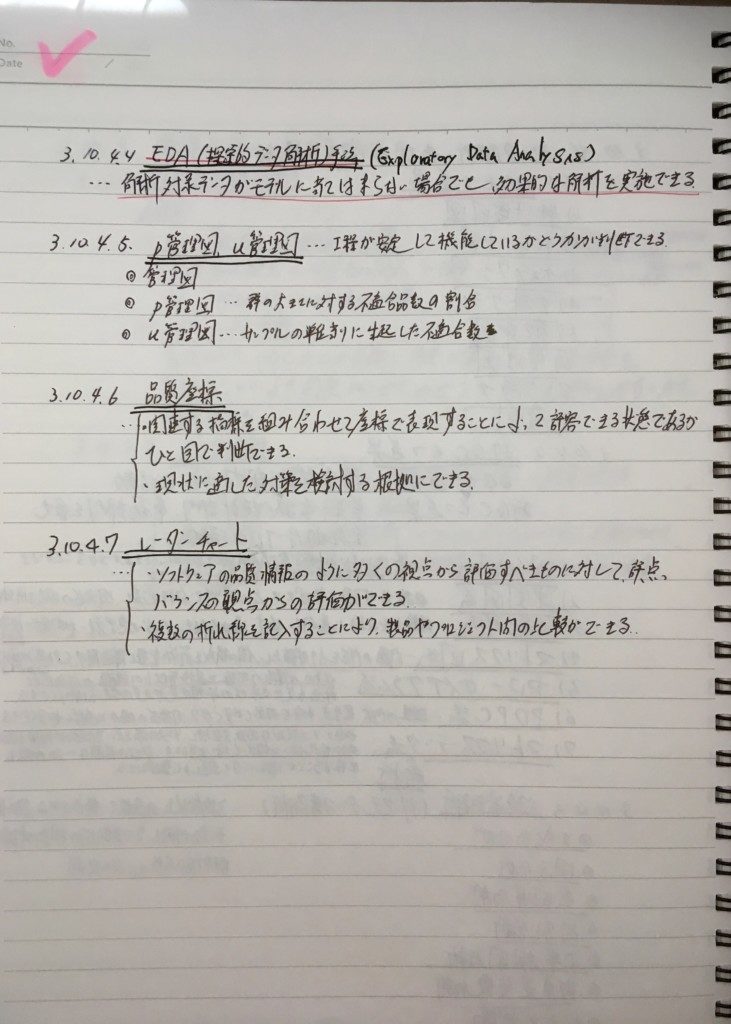 No.
Date /
3.10.4.4 EDA(探索的データ解析)手法 (Exploratory Data Analysis)
… 解析対象データがモデルに当てはまらない場合でも、効果的な解析を実施できる
3.10.4.5. p管理図, u管理図 … 工程が安定して機能しているかどうかが判断できる
管理図
p管理図 … 群の大きさに対する不適合品数の割合
u管理図 … サンプルの単位当りに生起した不適合数
3.10.4.6 品質座標
… ・関連する指標を組み合わせて座標で表現することによって許容できる状態であるか
ひと目で判断できる.
・現状に適した対策を検討する根拠にできる.
3.10.4.7 レーダーチャート
… ・ソフトウェアの品質情報のように多くの視点から評価すべきものに対して、
バランスの観点からの評価ができる.
・複数の折れ線を記入することにより、製品やプロジェクト間の比較ができる.